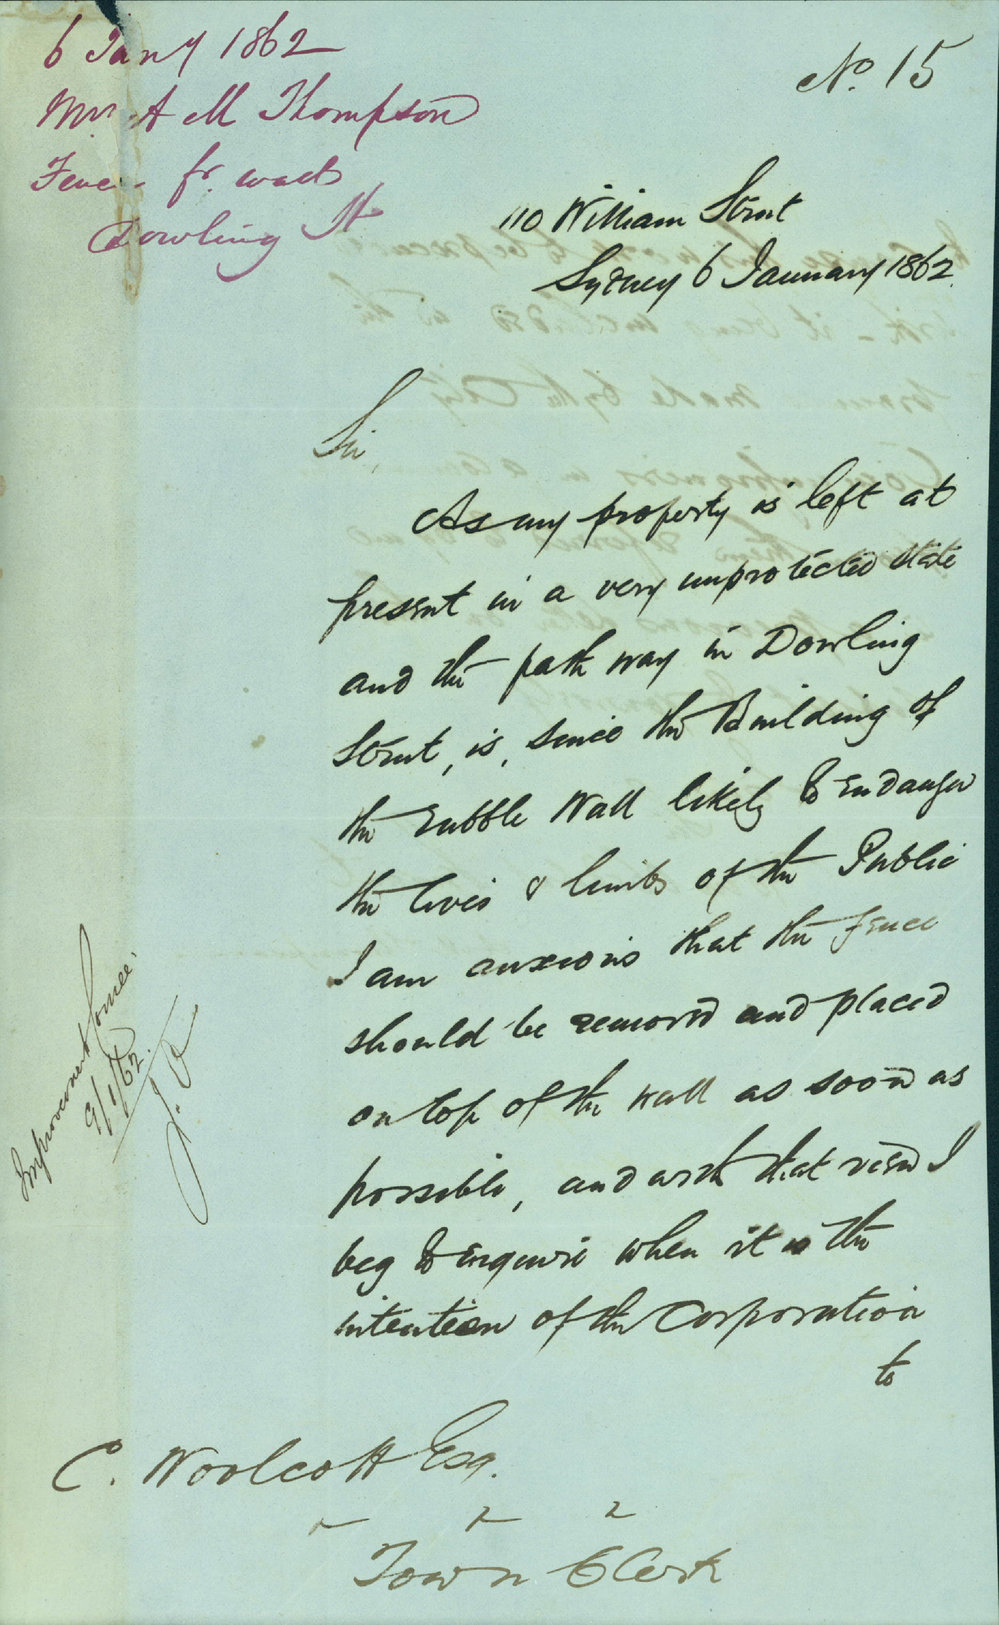 6 Jany 1862
Mr. A M Thompson
Fence fr. wall
Dowling St
No. 15
110 William Street
Sydney 6 January 1862.
Sir,
As my property is left at
present in a very unprotected state
and the path way in Dowling
Street, is, since the Building of
the rubble Wall likely to endanger
the lives & limbs of the Public
I am anxious that the fence
should be removed and placed
on top of the wall as soon as
possible, and with that view I
beg to enquire when it is the
intention of the Corporation
to
Improvement Comee.
9/1/62.
C. Woolcott Esq.
Town Clerk